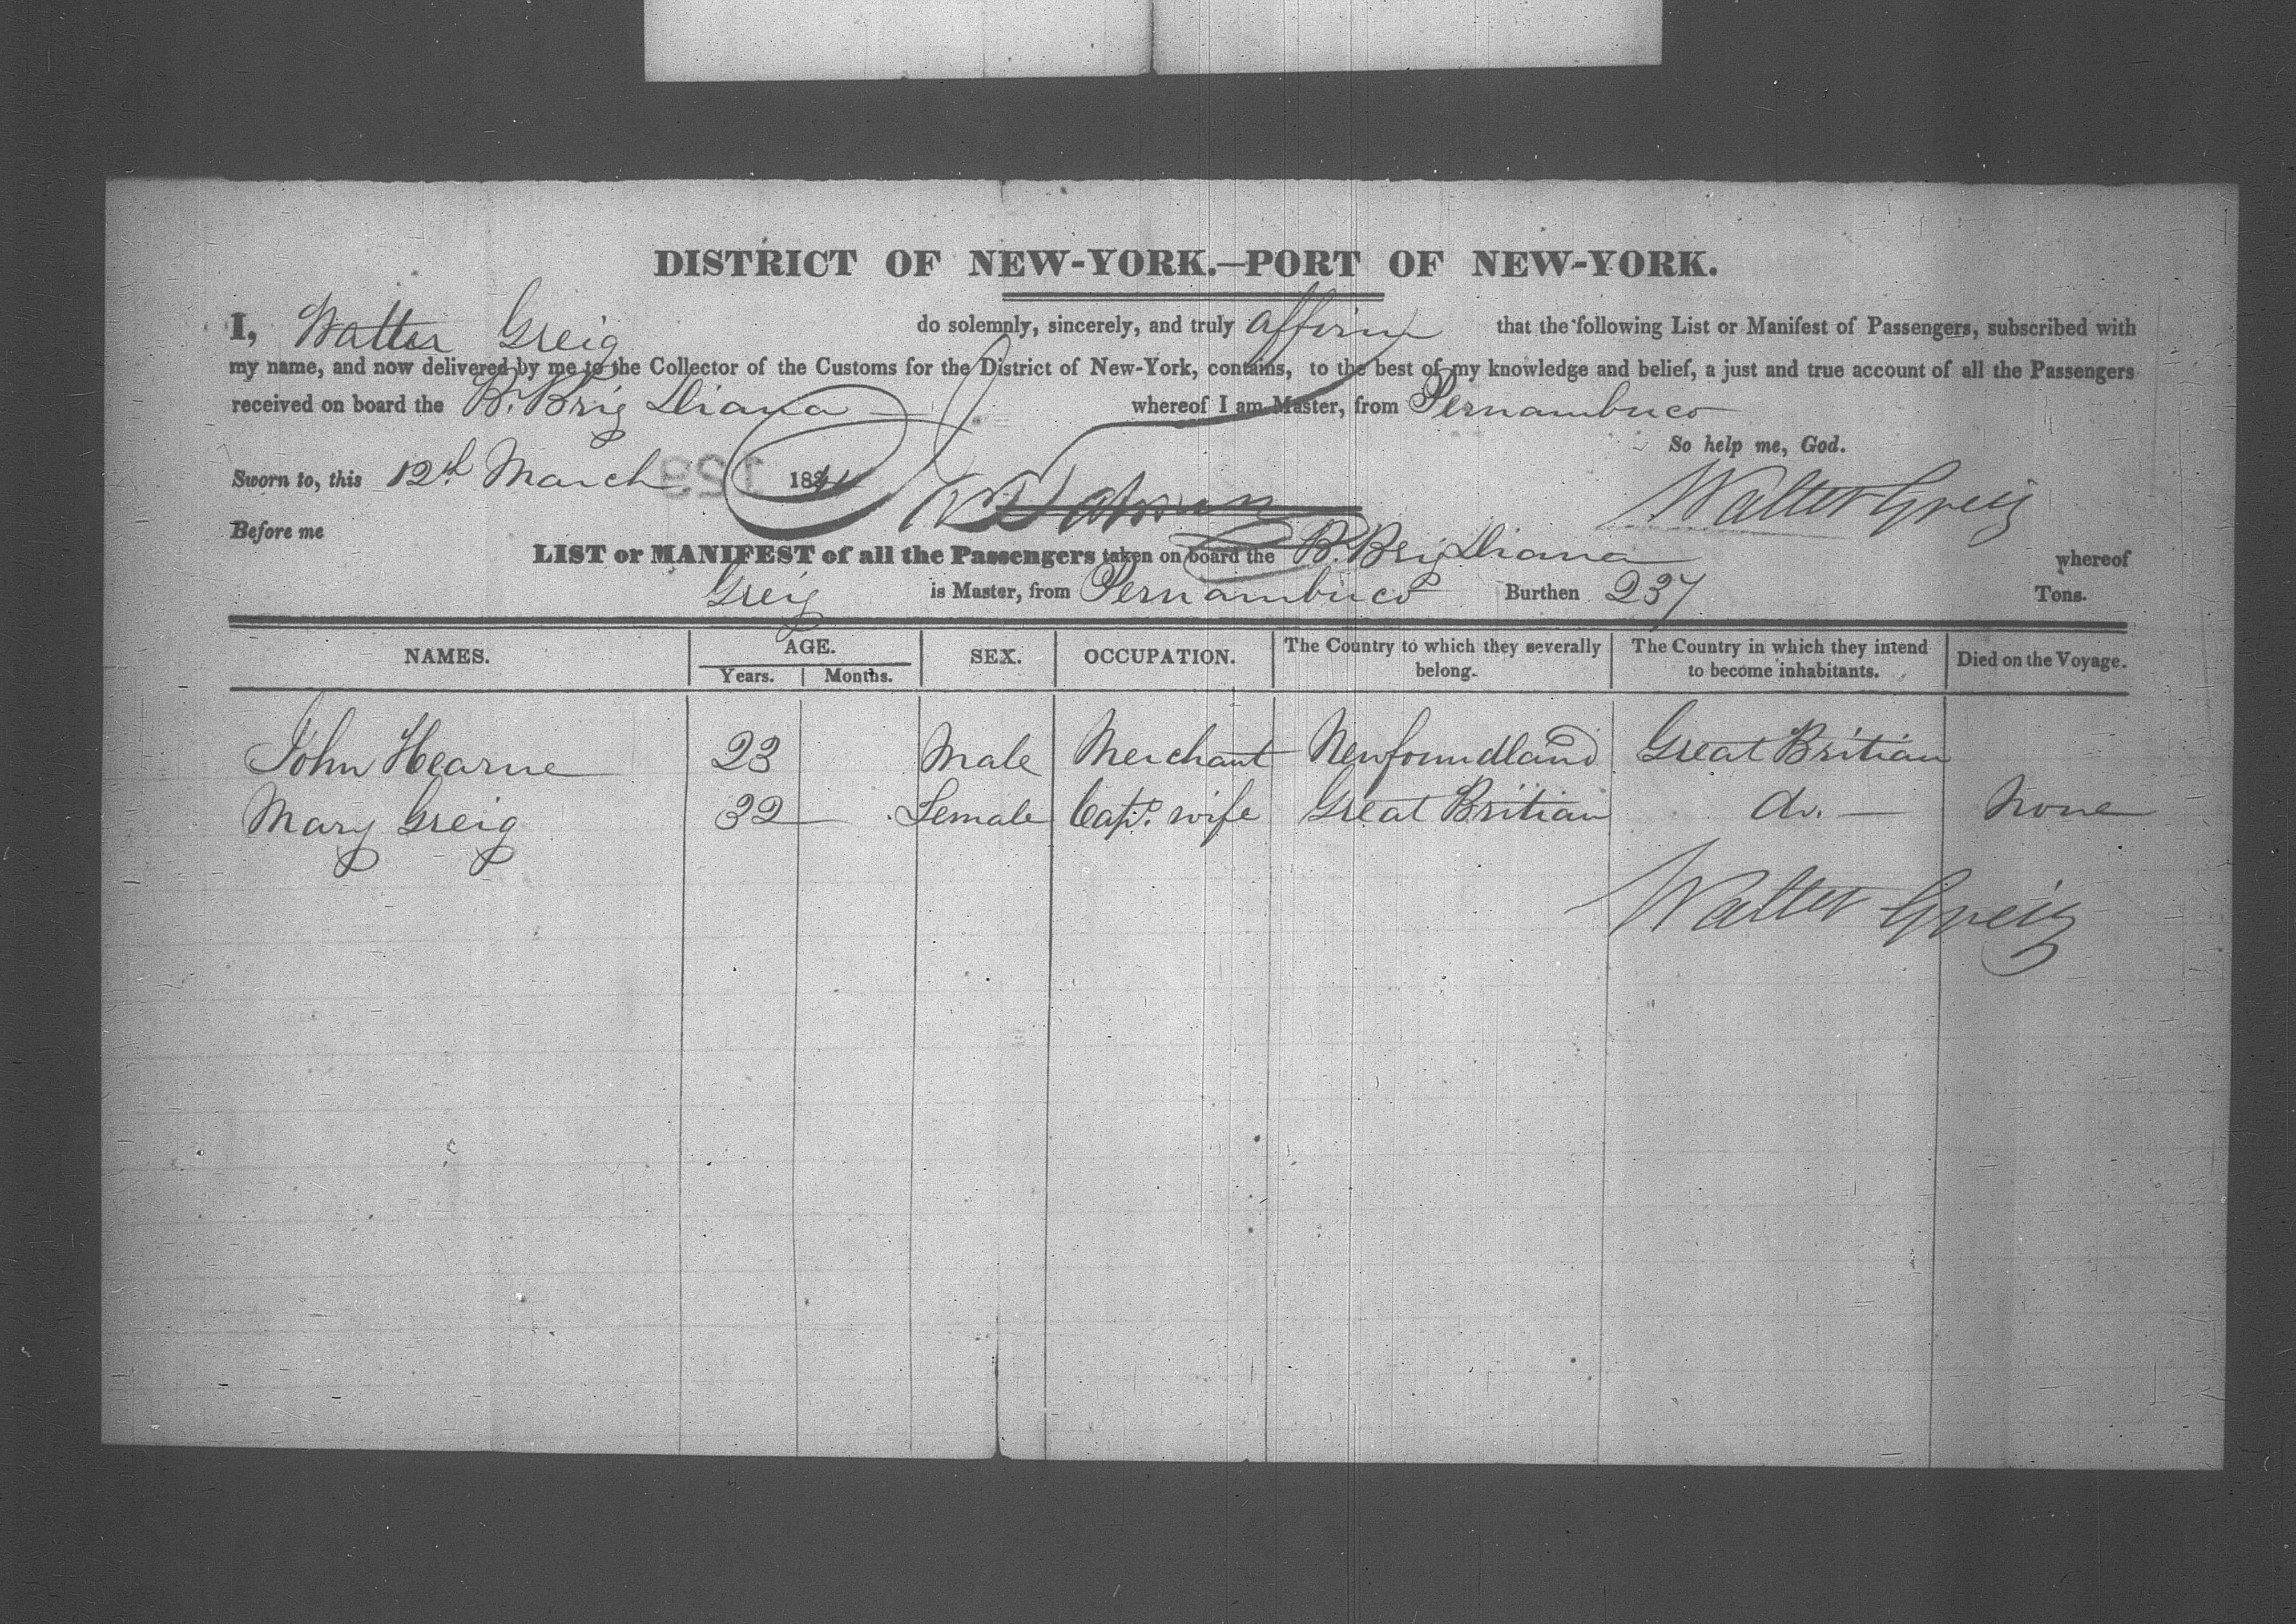 DISTRICT OF NEW-YORK.—PORT OF NEW-YORK.
I, Walter Greig do solemnly, sincerely, and truly affirm that the following List or Manifest of Passengers, subscribed with
my name, and now delivered by me to the Collector of the Customs for the District of New-York, contains, to the best of my knowledge and belief, a just and true account of all the Passengers
received on board the B. Brig Diana whereof I am Master, from Pernambuco
So help me, God.
Sworn to, this 12th March 18 Walter Greig
Before me
LIST or MANIFEST of all the Passengers taken on board the B. Brig Diana whereof
Greig is Master, from Pernambuco Burthen 237 Tons.
NAMES. AGE. SEX. OCCUPATION. The Country to which they severally belong. The Country in which they intend to become inhabitants. Died on the Voyage.
Years. Months.
John Hearne 23 Male Merchant Newfoundland Great Britian
Mary Greig 32 — Female Capt. wife Great Britian do. — None
Walter Greig